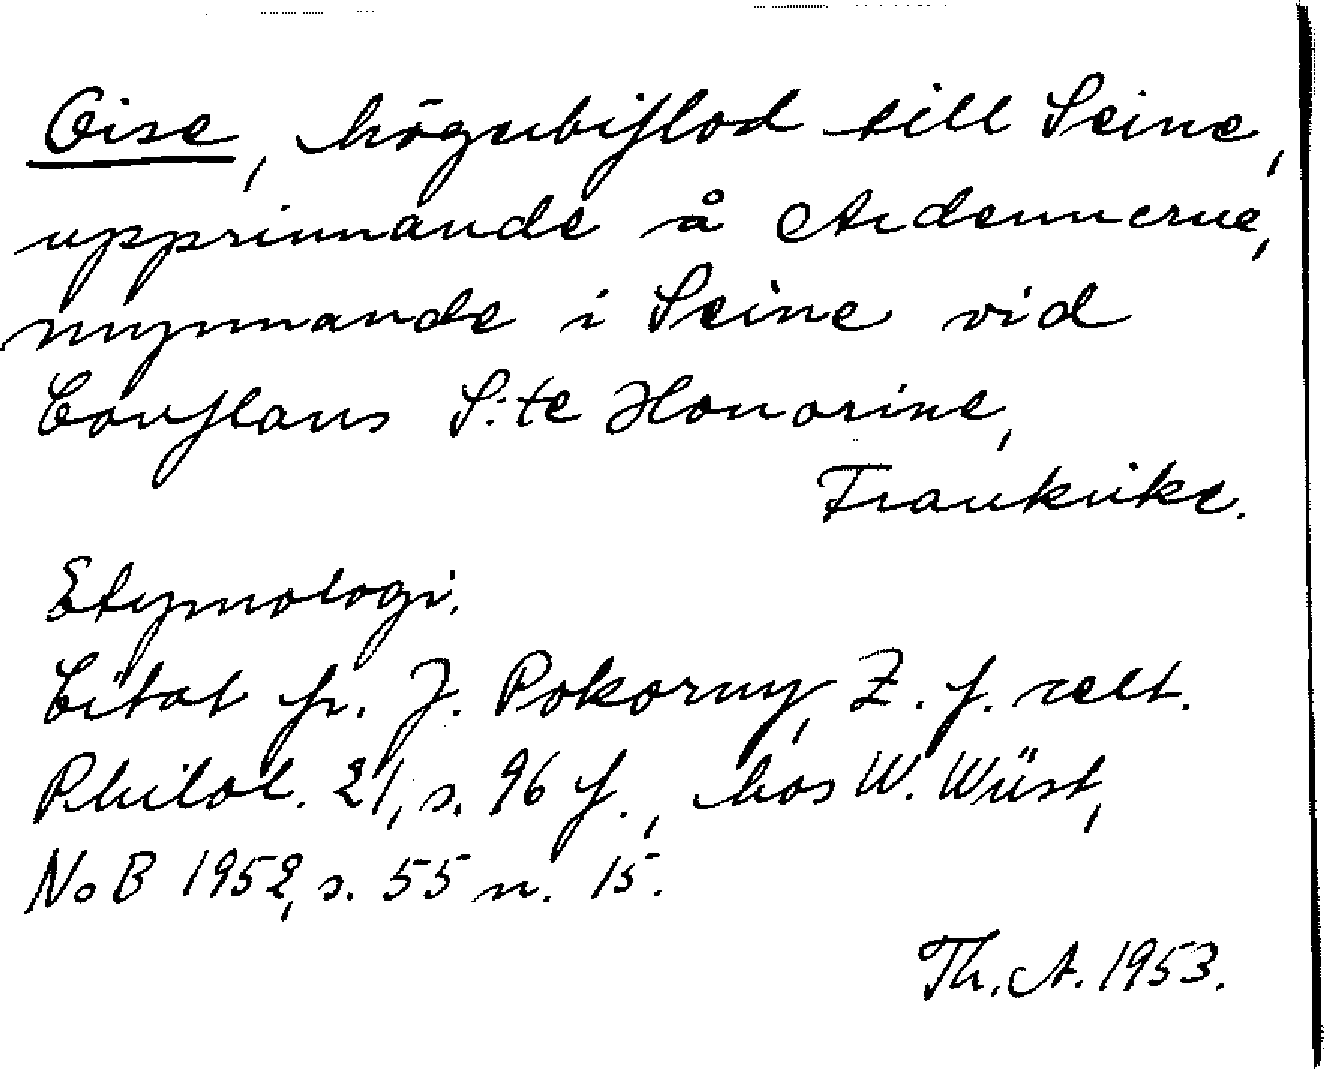 Oise, högerbiflod till Seine,
upprinnande å Ardennerna,
mynnande i Seine vid
Conflans S:te Honorine,
Frankrike.
Etymologi.
Citat fr. J. Pokorny, Z. f. celt.
Philol. 21, s. 96 f., hos W. Wüst,
NoB 1952, s. 55 n. 15.
Th. A. 1953.